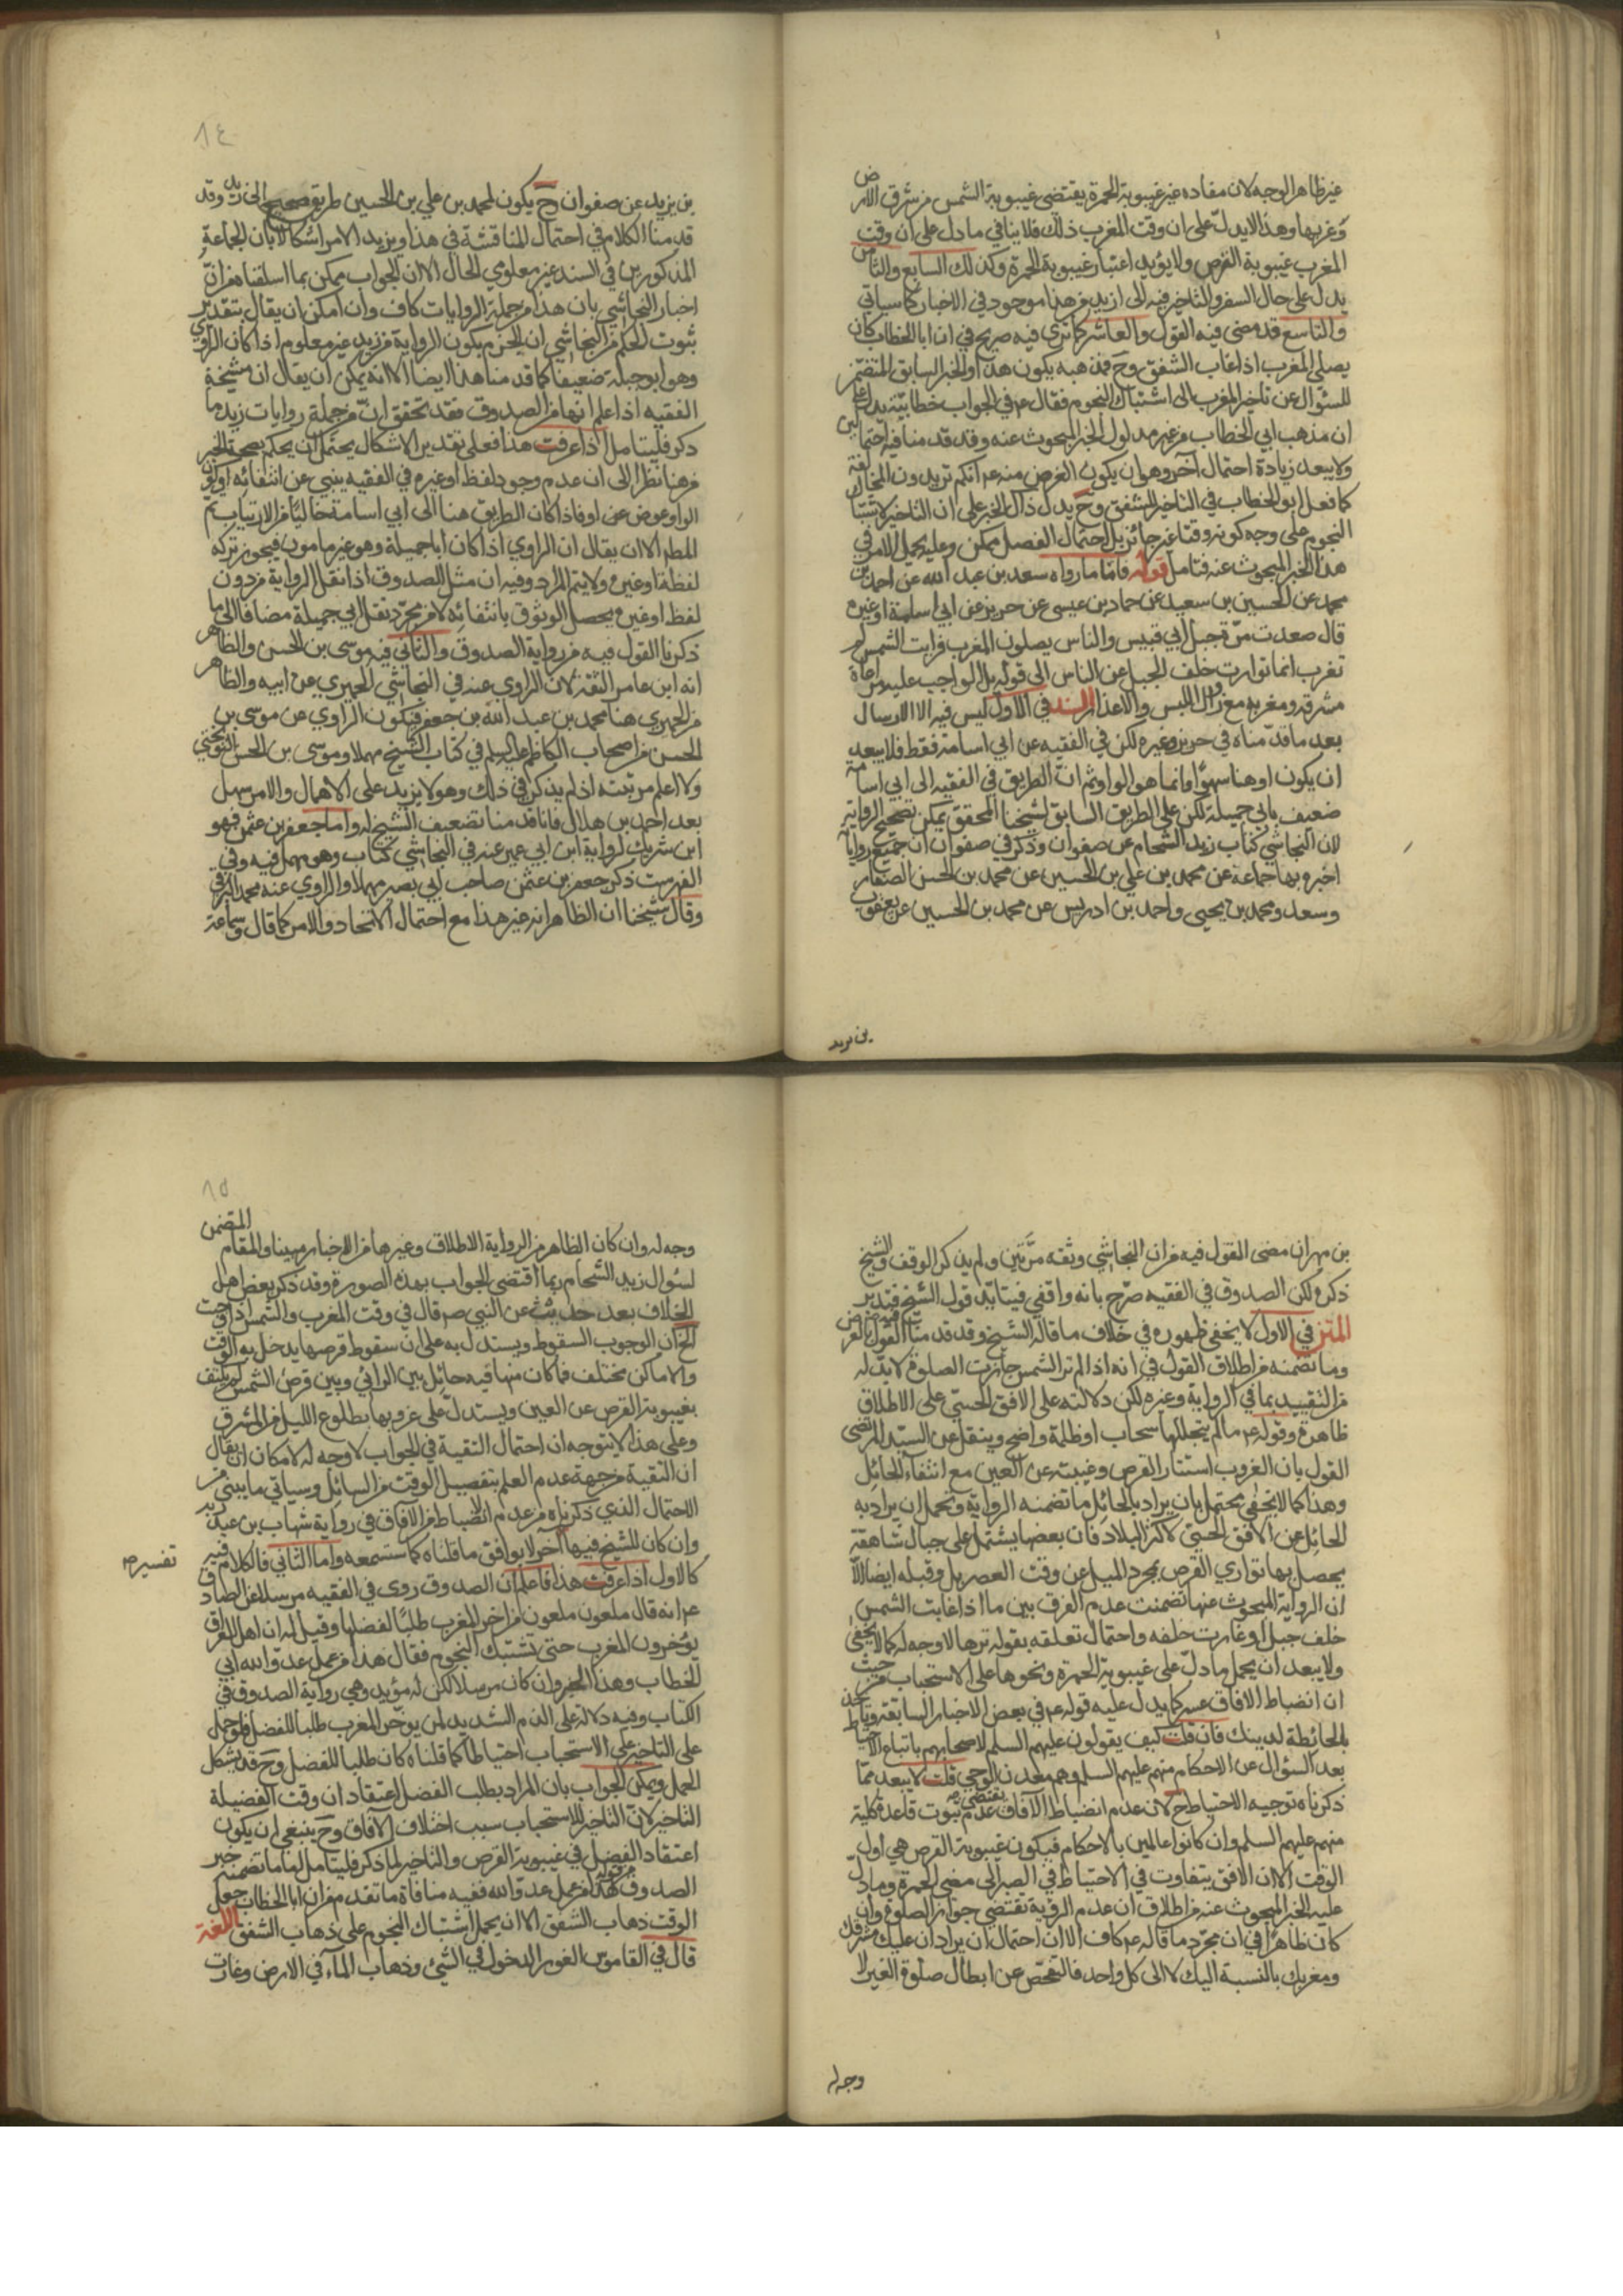 غير ظاهر الوجه لان مفاده غير غيبوبة الحمرة يقتضي غيبوبة الشمس من شرق الارض
وغربها وهذا لا يدل على ان وقت المغرب ذلك فلا ينافي ما دل على ان وقت
المغرب غيبوبة القرص ولا يؤيد اعتبار غيبوبة الحمرة وكذلك السابع والثامن
يدل على حال السفر والتاخير فيه الى ازيد من هذا موجود في الاخبار كما سياتي
والتاسع قد مضى فيه القول والعاشر كما ترى فيه صريح في ان ابا الخطاب كان
يصلي المغرب اذا غاب الشفق وح فمذهبه يكون هذا والخبر السابق المتضمن
للسؤال عن تاخير المغرب الى اشتباك النجوم فقال عم في الجواب خطابية يدل على
ان مذهب ابي الخطاب من غير مدلول الخبر المبحوث عنه وقد قدمنا فيه احتمالين
ولا يبعد زيادة احتمال آخر وهو ان يكون الغرض منه عم انكم تريدون المخالفة
كما فعل ابو الخطاب في التاخير للشفق وح يدل ذاك الخبر على ان التاخير لاشتباك
النجوم على وجه كونه وقتا غير جائز بل احتمال الفصل ممكن وعليه يحمل الامر في
هذا الخبر المبحوث عنه فتامل قوله فاما ما رواه سعد بن عبد الله عن احمد بن
محمد عن الحسين بن سعيد عن حماد بن عيسى عن حريز عن ابي اسامة او غيره
قال صعدت مرة جبل ابي قبيس والناس يصلون المغرب فرايت الشمس لم
تغرب انما توارت خلف الجبل عن الناس الى قوله بل الواجب عليه مراعاة
مشرقه ومغربه مع زوال اللبس والاعذار السند في الاول ليس فيه الا الارسال
بعد ما قدمناه في حريز وغيره لكن في الفقيه عن ابي اسامة فقط فلا يبعد
ان يكون او هنا سهوا وانما هو الواو ثم ان الطريق في الفقيه الى ابي اسامة
ضعيف بابي جميلة لكن على الطريق السابق لشيخنا المحقق يمكن تصحيح الرواية
لان النجاشي كتاب زيد الشحام عن صفوان وذكر في صفوان ان جميع رواياته
اخبره بها جماعة عن محمد بن علي بن الحسين عن محمد بن الحسن الصفار
وسعد ومحمد بن يحيى واحمد بن ادريس عن محمد بن الحسين عن يعقوب
بن يزيد
٨٤
بن يزيد عن صفوان وح يكون لمحمد بن علي بن الحسين طريق صحيح الى زيد وقد
قدمنا الكلام في احتمال المناقشة في هذا ويزيد الامر اشكالا بان الجماعة
المذكورين في السند غير معلومي الحال الا ان الجواب ممكن بما اسلفناه من ان
اخبار النجاشي بان هذا من جملة الروايات كاف وان امكن ان يقال بتقدير
ثبوت الحكم من النجاشي ان الجزم بكون الرواية من زيد غير معلوم اذا كان الراوي
وهو ابو جميلة ضعيفا كما قدمنا هذا ايضا الا انه يمكن ان يقال ان مشيخة
الفقيه اذا علم انها من الصدوق فقد تحقق ان من جملة روايات زيد ما
ذكر فليتامل اذا عرفت هذا فعلى تقدير الاشكال يحتمل ان يحكم بصحة الخبر
من هنا نظرا الى ان عدم وجود لفظ او غيره في الفقيه ينبي عن انتفائه او كون
الواو عوض عن او فاذا كان الطريق هنا الى ابي اسامة خاليا من الارتياب تم
المطلب الا ان يقال ان الراوي اذا كان ابا جميلة وهو غير مامون فيجوز تركه
لفظة او غيره ولا يتم المراد وفيه ان مثل الصدوق اذا نقل الرواية من دون
لفظ او غيره يحصل الوثوق بانتفائه لا من مجرد نقل ابي جميلة مضافا الى ما
ذكرنا القول فيه من رواية الصدوق والثاني فيه موسى بن الحسن والظاهر
انه ابن عامر الثقة لان الراوي عنه في النجاشي الحميري عن ابيه والظاهر
من الحميري هنا محمد بن عبد الله بن جعفر فيكون الراوي عن موسى بن
الحسن من اصحاب الكاظم عليه السلم في كتاب الشيخ مهملا وموسى بن الحسن النوبختي
ولا اعلم مرتبته اذ لم يذكر في ذلك وهو لا يزيد على الاهمال والامر سهل
بعد احمد بن هلال فانا قدمنا تضعيف الشيخ له واما جعفر بن عثمن فهو
ابن شريك لرواية ابن ابي عمير عنه في النجاشي كتاب وهو مهمل فيه وفي
الفهرست ذكر جعفر بن عثمن صاحب ابي بصير مهملا والراوي عنه محمد البرقي
وقال شيخنا ان الظاهر انه غير هذا مع احتمال الاتحاد والامر كما قال وسماعة
بن مهران مضى القول فيه من ان النجاشي وثقه مرتين ولم يذكر الوقف والشيخ
ذكره لكن الصدوق في الفقيه صرح بانه واقفي فيتايد قول الشيخ فتدبر
المتن في الاول لا يخفى ظهوره في خلاف ما قاله الشيخ وقد قدمنا القول
وما تضمنه من اطلاق القول في انه اذا لم تر الشمس جازت الصلوة لا بد له
من التقييد بما في الرواية وغيره لكن دلالته على الافق الحسي على الاطلاق
ظاهرة وقوله عم ما لم يتجللها سحاب او ظلمة واضح وينقل عن السيد المرتضى
القول بان الغروب استتار القرص وغيبته عن العين مع انتفاء الحائل
وهذا كما لا يخفى يحتمل بان يراد بالحائل ما تضمنه الرواية وتحمل ان يراد به
الحائل عن الافق الحسي كاكثر البلاد فان بعضها يشتمل على جبال شاهقة
يحصل بها تواري القرص بمجرد الميل عن وقت العصر بل وقبله ايضا الا
ان الرواية المبحوث عنها تضمنت عدم الفرق بين ما اذا غابت الشمس
خلف جبل او غارت خلفه واحتمال تعلقه بقوله ترها لا وجه له كما لا يخفى
ولا يبعد ان يحمل ما دل على غيبوبة الحمرة ونحوها على الاستحباب من حيث
ان انضباط الافاق عسر كما يدل عليه قوله عم في بعض الاخبار السابقة وتاخذ
بالحائطة لدينك فان قلت كيف يقولون عليهم السلم لاصحابهم باتباع الاحتياط
بعد السؤال عن الاحكام منهم عليهم السلم وهم معدن الوحي قلت لا يبعد مما
ذكرناه توجيه الاحتياط ح لان عدم انضباط الآفاق يقتضي عدم ثبوت قاعدة كلية
منهم عليهم السلم وان كانوا عالمين بالاحكام فيكون غيبوبة القرص هي اول
الوقت الا ان الافق يتفاوت في الاحتياط في الصبر الى مضي الحمرة وما دل
عليه الخبر المبحوث عنه من اطلاق ان عدم الرؤية تقتضي جواز الصلوة وان
كان ظاهرا في ان مجرد ما قاله عم كاف الا ان احتمال ان يراد ان عليك مشرقك
ومغربك بالنسبة اليك لا الى كل واحد فالتفحص عن ابطال صلوة الغير لا
وجه له
٨٥
وجه له وان كان الظاهر من الرواية الاطلاق وغيرها من الاخبار مبينا والمقام المتضمن
لسؤال زيد الشحام ربما اقتضى الجواب بهذه الصورة وقد ذكر بعض اهل
الخلاف بعد حديث عن النبي صم قال في وقت المغرب والشمس اذا وجبت
الخ ان الوجوب السقوط ويستدل به على ان سقوط قرصها يدخل به الوقت
والاماكن تختلف فما كان منها فيه حائل بين الرائي وبين قرص الشمس لم يكتف
بغيبوبة القرص عن العين ويستدل على غروبها بطلوع الليل من المشرق
وعلى هذا لا يتوجه ان احتمال التقية في الجواب لا وجه له لامكان ان يقال
ان التقية من جهة عدم العلم بتفصيل الوقت من السائل وسياتي ما ينبئ عن
الاحتمال الذي ذكرناه من عدم انضباط الآفاق في رواية شهاب بن عبد ربه
وان كان للشيخ فيها آخر لا يوافق ما قلناه كما ستسمعه واما الثاني فالكلام فيه
تفسير صم
كالاول اذا عرفت هذا فاعلم ان الصدوق روى في الفقيه مرسلا عن الصادق
عم انه قال ملعون ملعون من اخر المغرب طلبا لفضلها وقيل له ان اهل العراق
يؤخرون المغرب حتى تشتبك النجوم فقال هذا من عمل عدو الله ابي
الخطاب وهذا الخبر وان كان مرسلا لكن له مؤيد وهي رواية الصدوق في
الكتاب وفيه دلالة على الذم الشديد لمن يؤخر المغرب طلبا للفضل فلو حمل
على التاخير على الاستحباب احتياطا كما قلناه كان طلبا للفضل وح قد يشكل
الحمل ويمكن الجواب بان المراد بطلب الفضل اعتقاد ان وقت الفضيلة
التاخير لان التاخير للاستحباب سبب اختلاف الآفاق وح ينبغي ان يكون
اعتقاد الفضل في غيبوبة القرص والتاخير لما ذكر فليتامل اما ما تضمنه خبر
الصدوق من قوله هذا من عمل عدو الله ففيه منافاة ما تقدم من ان ابا الخطاب جعل
الوقت ذهاب الشفق الا ان يحمل اشتباك النجوم على ذهاب الشفق اللغة
قال في القاموس الغور الدخول في الشيئ وذهاب الماء في الارض وغارت